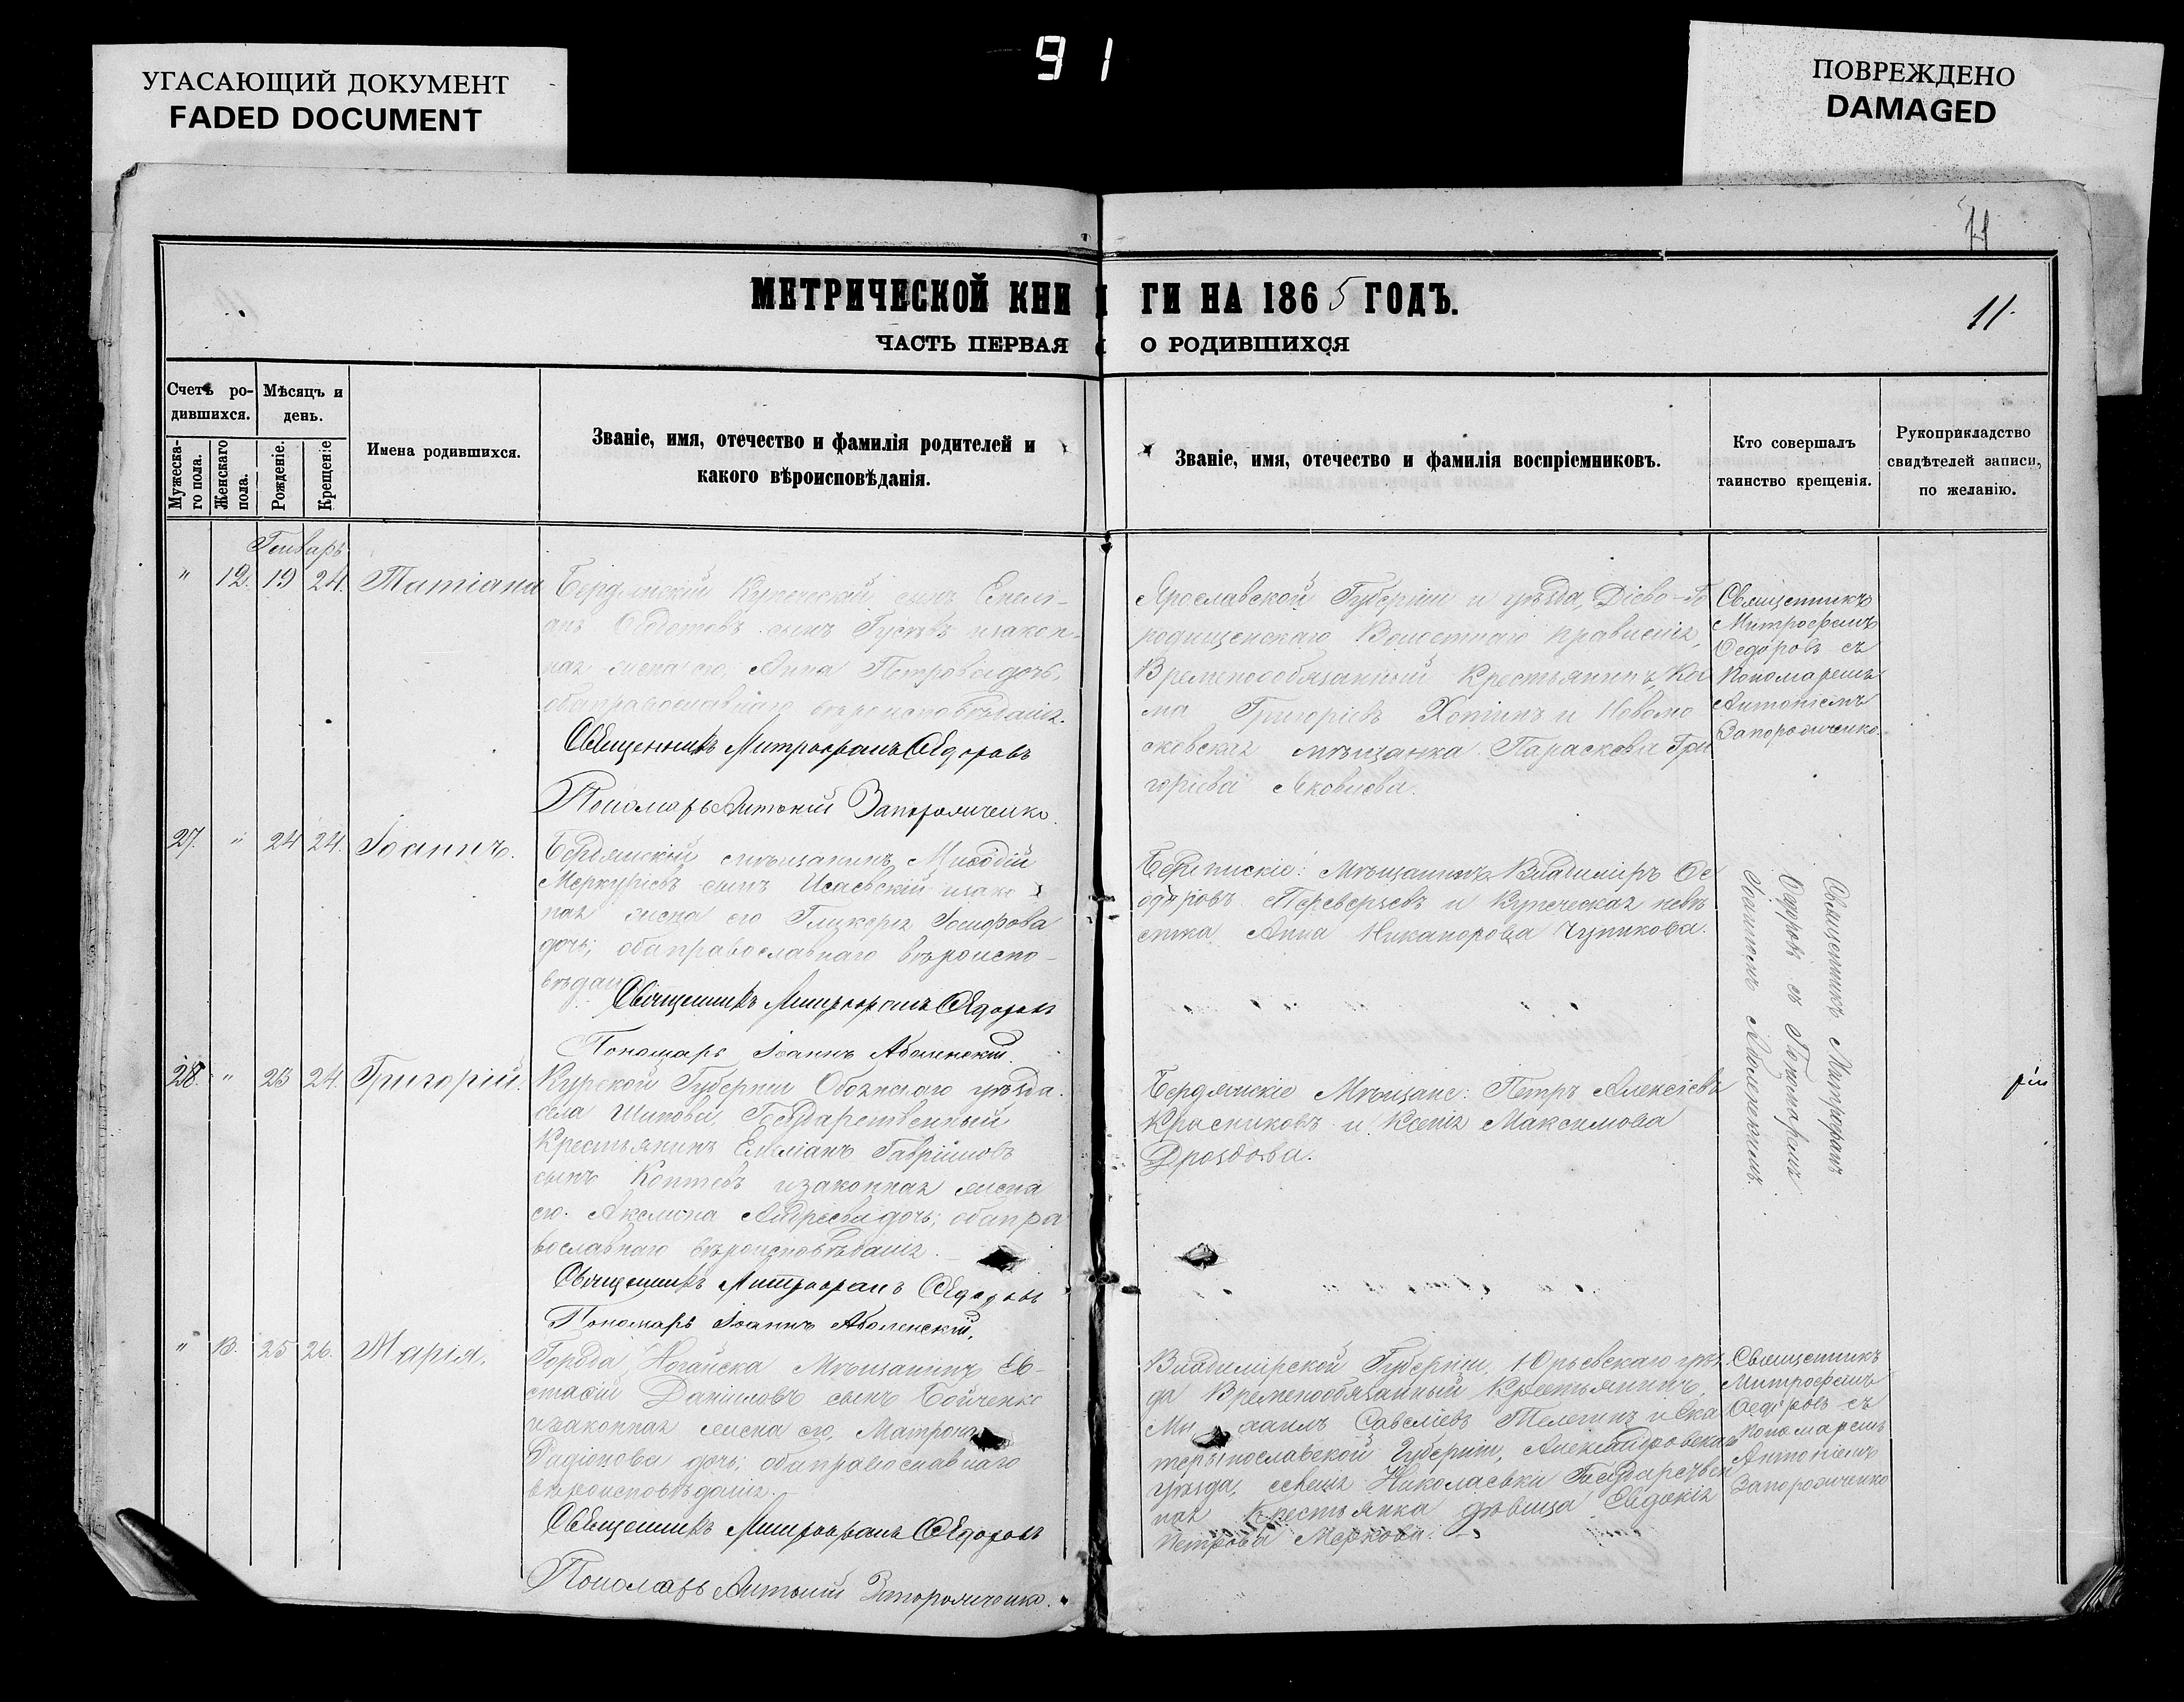 91
УГАСАЮЩИЙ ДОКУМЕНТ
FADED DOCUMENT
ПОВРЕЖДЕНО
DAMAGED
11
МЕТРИЧЕСКОЙ КНИ ГИ НА 1865 ГОДЪ.
11.
ЧАСТЬ ПЕРВАЯ О РОДИВШИХСЯ
Счетъ ро-
дившихся.
Мѣсяцъ и
день.
Мужеска-
го пола.
Женскаго
пола.
Рожденіе.
Крещеніе
Имена родившихся.
Званіе, имя, отечество и фамилія родителей и
какого вѣроисповѣданія.
Званіе, имя, отечество и фамилія воспріемниковъ.
Кто совершалъ
таинство крещенія.
Рукоприкладство
свидѣтелей записи,
по желанію.
Генварь
" 12. 19 24. Татіана
Бердянскій Купеческій сынъ Емелі-
анъ Ѳедотовъ сынъ Гусевъ изакон-
ная жена его, Анна Петрова дочь,
оба православнаго вѣроисповѣданія.
Священникъ Митрофанъ Ѳедоровъ
Пономарь Антоній Запорожченко.
Ярославской Губерніи и уѣзда, Діево-Го
родищенскаго Волостнаго правленія,
Временнообязанный Крестьянинъ, Ко
ма Григоріевъ Хопинъ и Новомо
сковская мѣщанка Параскева Гри
горіева Яковлева.
Священникъ
Митрофанъ
Ѳедоровъ съ
Пономаремъ
Антоніемъ
Запорожченко.
27. " 24 24. Іоаннъ.
Бердянскій мѣщанинъ Меѳодій
Меркуріевъ сынъ Исаевскій изако
ная жена его Гликерія Іосифова
дочь; оба православнаго вѣроиспо-
вѣдан
Священникъ Митрофанъ Ѳедоровъ
Пономарь Іоаннъ Аболенскій.
Мѣщанинъ Владиміръ Ѳе
одоровъ Переверзевъ и Купеческая невѣ
стка Анна Никанорова
Священникъ Митрофанъ
Ѳедоровъ съ Пономаремъ
Іоанномъ Аболенскимъ.
28. " 23 24. Григорій.
Курской Губерніи Обоянскаго уѣзда
села Шиповой, Государственный
Крестьянинъ Емеліанъ Гавріиловъ
сынъ Коптевъ изаконная жена
его Акелина Андреева дочь; оба пра
вославнаго вѣроисповѣданія.
Священникъ Митрофанъ Ѳедоровъ
Пономарь Іоаннъ Аболенскій.
Бердянскіе Мѣщане: Петръ Алексіевъ
Красниковъ и Ксенія Максимова
Дроздова.
" 13. 25 26. Марія.
Города Ногайска Мѣщанинъ Ев-
стафій Даниловъ сынъ Бойченко
изаконная жена его, Матрона
Радіонова дочь; оба православнаго
вѣроисповѣданія.
Священникъ Митрофанъ Ѳедоровъ
Пономарь Антоній Запорожченко.
Владимірской Губерніи, Юрьевскаго уѣз
да Временнообязанный Крестьянинъ,
Ми хаилъ Савеліевъ Телегинъ и Ека
теринославской Губерніи, Александровскаго
уѣзда, селенія Николаевки Государствен
ная Крестьянка дѣвица Евдокія
Петрова Меркова.
Священникъ
Митрофанъ
Ѳедоровъ съ
Пономаремъ
Антоніемъ
Запорожченко